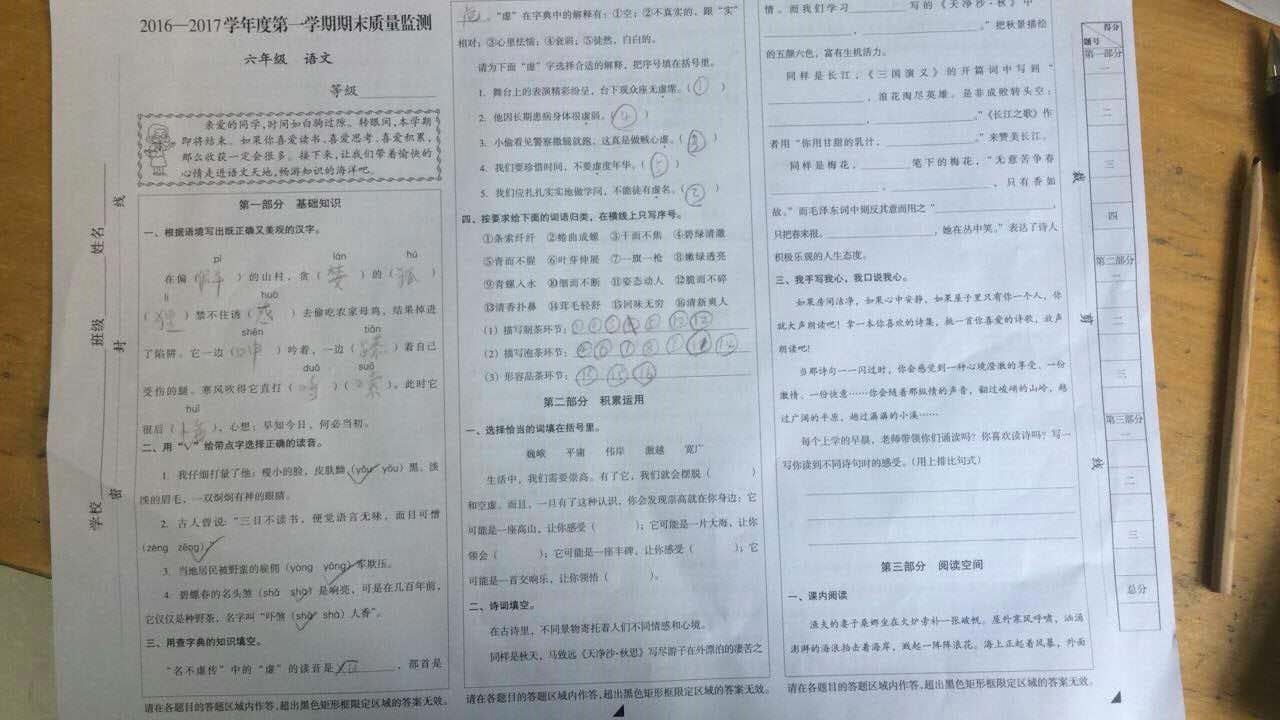 2016—2017学年度第一学期期末质量监测
六年级 语文
等级
亲爱的同学,时间如白驹过隙。转眼间,本学期
即将结束。如果你喜爱读书,喜爱思考,喜爱积累,
那么收获一定会很多。接下来,让我们带着愉快的
心情走进语文天地,畅游知识的海洋吧。
学校 班级 姓名
密 封 线
第一部分 基础知识
一、根据语境写出既正确又美观的汉字。
pì lán hú
在偏( 僻 )的山村,贪( 婪 )的( 狐 )
li huò
( 狸 )禁不住诱( 惑 )去偷吃农家母鸡,结果掉进
shēn tiǎn
了陷阱。它一边( 呻 )吟着,一边( )着自己
duō suō
受伤的腿。寒风吹得它直打( 哆 )( 嗦 )。此时它
huǐ
很后( 悔 ),心想:早知今日,何必当初。
二、用“√”给带点字选择正确的读音。
1. 我仔细打量了他:瘦小的脸,皮肤黝(yǒu yōu)黑。淡
淡的眉毛,一双炯炯有神的眼睛。
2. 古人曾说:“三日不读书,便觉语言无味,面目可憎
(zèng zēng)。”
3. 当地居民被野蛮的雇佣(yòng yōng)军欺压。
4. 碧螺春的名头煞(shā shà)是响亮,可是在几百年前,
它仅仅是种野茶,名字叫“吓煞(shà shā)人香”。
三、用查字典的知识填空。
“名不虚传”中的“虚”的读音是 ,部首是
。“虚”在字典中的解释有:①空;②不真实的,跟“实”
相对;③心里怯懦;④衰弱;⑤徒然,白白的。
请为下面“虚”字选择合适的解释,把序号填在括号里。
1. 舞台上的表演精彩纷呈,台下观众座无虚席。( ① )
2. 他因长期患病身体很虚弱。( ④ )
3. 小偷看见警察撒腿就跑,这真是做贼心虚。( ③ )
4. 我们要珍惜时间,不要虚度年华。( ⑤ )
5. 我们应扎扎实实地做学问,不能徒有虚名。( ② )
四、按要求给下面的词语归类,在横线上只写序号。
①条索纤纤 ②蜷曲成螺 ③干而不焦 ④碧绿清澈
⑤青而不腥 ⑥叶芽伸展 ⑦一旗一枪 ⑧嫩绿透亮
⑨青螺入水 ⑩细而不断 ⑪姿态动人 ⑫脆而不碎
⑬清香扑鼻 ⑭茸毛轻舒 ⑮回味无穷 ⑯清新爽人
(1)描写制茶环节:
(2)描写泡茶环节:
(3)形容品茶环节:
第二部分 积累运用
一、选择恰当的词填在括号里。
巍峨 平庸 伟岸 激越 宽广
生活中,我们需要崇高。有了它,我们就会摆脱( )
和空虚。而且,一旦有了这种认识,你会发现崇高就在你身边:它
可能是一座高山,让你感受( );它可能是一片大海,让你
领会( );它可能是一座丰碑,让你感受( );它
可能是一首交响乐,让你领悟( )。
二、诗词填空。
在古诗里,不同景物寄托着人们不同情感和心境。
同样是秋天,马致远《天净沙·秋思》写尽游子在外漂泊的凄苦之
情。而我们学习 写的《天净沙·秋》中“
, 。”把秋景描绘
的五颜六色,富有生机活力。
同样是长江,《三国演义》的开篇词中写到“
,浪花淘尽英雄。是非成败转头空:
, 。”《长江之歌》作
者用“你用甘甜的乳汁, 。”来赞美长江。
同样是梅花, 笔下的梅花,“无意苦争春
, 、只有香如
故。”而毛泽东词中则反其意而用之“ ,
只把春来报。 ,她在丛中笑。”表达了诗人
积极乐观的人生态度。
三、我手写我心,我口说我心。
如果房间洁净,如果心中安静,如果屋子里只有你一个人,你
就大声朗读吧!拿一本你喜欢的诗集,挑一首你喜爱的诗歌,放声
朗读吧!
当那诗句一一闪过时,你会感觉到一种心境澄澈的享受、一份
激情、一份快意……你会随着那纵情的声音,翻过峻峭的山岭,越
过广阔的平原,趟过潺潺的小溪……
每个上学的早晨,老师带领你们诵读吗?你喜欢读诗吗?写一
写你读到不同诗句时的感受。(用上排比句式)
第三部分 阅读空间
一、课内阅读
渔夫的妻子桑娜坐在火炉旁补一张破帆。屋外寒风呼啸,汹涌
澎湃的海浪拍击着海岸,溅起一阵阵浪花。海上正起着风暴,外面
请在各题目的答题区域内作答,超出黑色矩形框限定区域的答案无效。
请在各题目的答题区域内作答,超出黑色矩形框限定区域的答案无效。
请在各题目的答题区域内作答,超出黑色矩形框限定区域的答案无效。
裁 剪 线
得分
题号
第一部分
一
二
三
四
第二部分
一
二
三
第三部分
一
二
三
总分